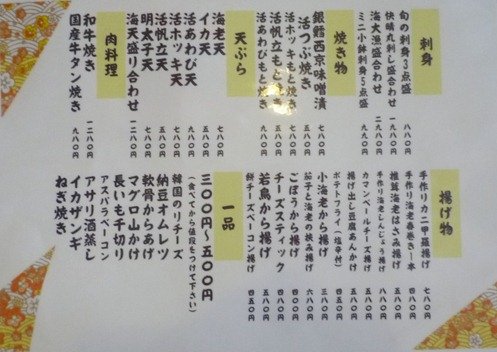 刺身
旬の刺身3点盛 八八〇
快晴丸刺し盛合わせ 一二八〇
海大漁盛合わせ 一九八〇
ミニ小鉢刺身5点盛 九八〇
焼き物
銀鱈西京味噌漬 五八〇
活つぶ焼き 七八〇
活ホッキもと焼き 七八〇
活帆立もと焼き 五八〇
活あわびもと焼き 九八〇
天ぷら
海老天 七八〇
イカ天 五八〇
活あわび天 九八〇
活ホッキ天 七八〇
活帆立天 五八〇
明太子天 七八〇
海天盛り合わせ 一二八〇
肉料理
和牛焼き 一二八〇
国産牛タン焼き 九八〇
揚げ物
手作りカニ甲羅揚げ 七八〇
手作り海老春巻き一本 二八〇
椎茸海老はさみ揚げ 五八〇
手作り海老しんじょう揚げ 八八〇
カマンベールチーズ揚げ 五八〇
揚げ出し豆腐あんかけ 五八〇
ポテトフライ(塩辛付) 四五〇
小海老から揚げ 五八〇
茄子と海老の挟み揚げ 六八〇
ごぼうから揚げ 三八〇
チーズスティック 四八〇
若鳥から揚げ 五八〇
餅チーズベーコン揚げ 四五〇
一品
三〇〇円〜五〇〇円
(食べてから値段をつけて下さい)
韓国のりチーズ
納豆オムレツ
軟骨からあげ
マグロ山かけ
長いも千切り
アスパラベーコン
アサリ酒蒸し
イカザンギ
ねぎ焼き